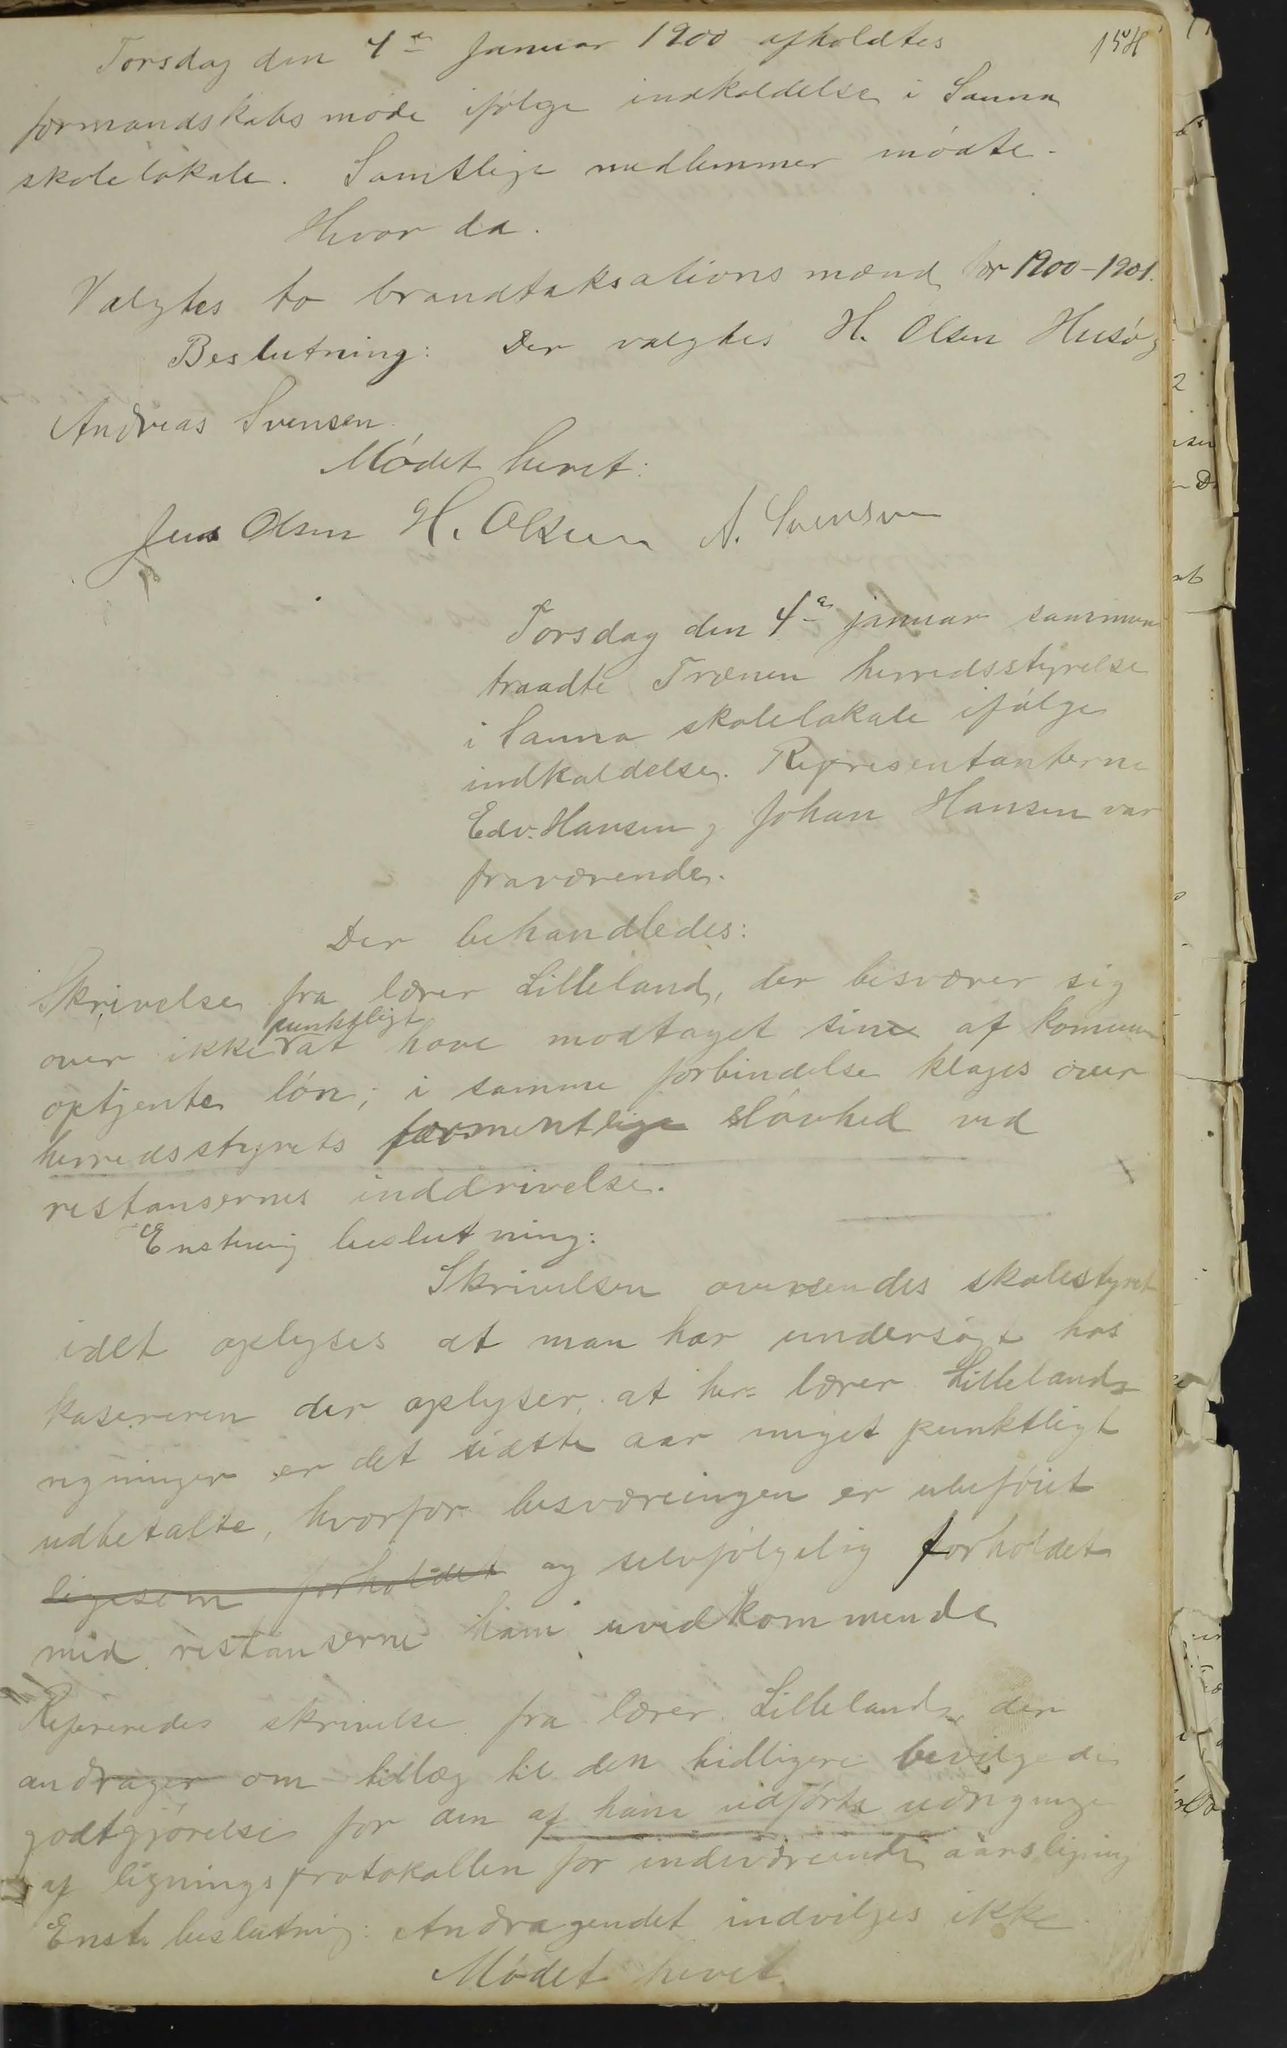 154
Torsdag den 4de Januar 1900 afholdtes
formandskabsmøde ifølge indkaldelse i Sanna
skolelokale. Samtlige medlemmer mødte.
Hvor da.
Valgtes to brandtaksationsmænd for 1900-1901.
Beslutning: Der valgtes H. Olsen Husø og
Andreas Svensen.
Mødet hevet:
Jens Olsen H. Olsen A. Svensen
Torsdag den 4de januar sammen
traadte Trænen herredsstyrelse
i Sanna skolelokale ifølge
indkaldelse. Repræsentanterne
Edv. Hansen og Johan Hansen var
fraværende.
Der behandledes:
Skrivelse fra lærer Lilleland, der besværer sig
punktligt
over ikke at have modtaget sine af komunen
optjente løn; i samme forbindelse klages over
herredsstyrets formentlige sløvhed ved
restansernes inddrivelse.
Enstemig beslutning:
Skrivelsen oversendes skolestyret
idet oplyses at man har undersøgt hos
kasereren der oplyser, at hr. lærer Lillelands
regninger er det sidste aar meget punktligt
udbetalte, hvorfor besværingen er ubeføiet
ligesom forholdet og selvfølgelig forholdet
med restanserne ham uvedkommende
Refereredes skrivelse fra lærer Lilleland der
andrager om tillæg til den tidligere bevilgede
godtgjørelse for den af ham udførte
af ligningsprotokollen for indeværende aarsligning
Enst. beslutning: Andragendet indvilges ikke.
Mødet hevet.